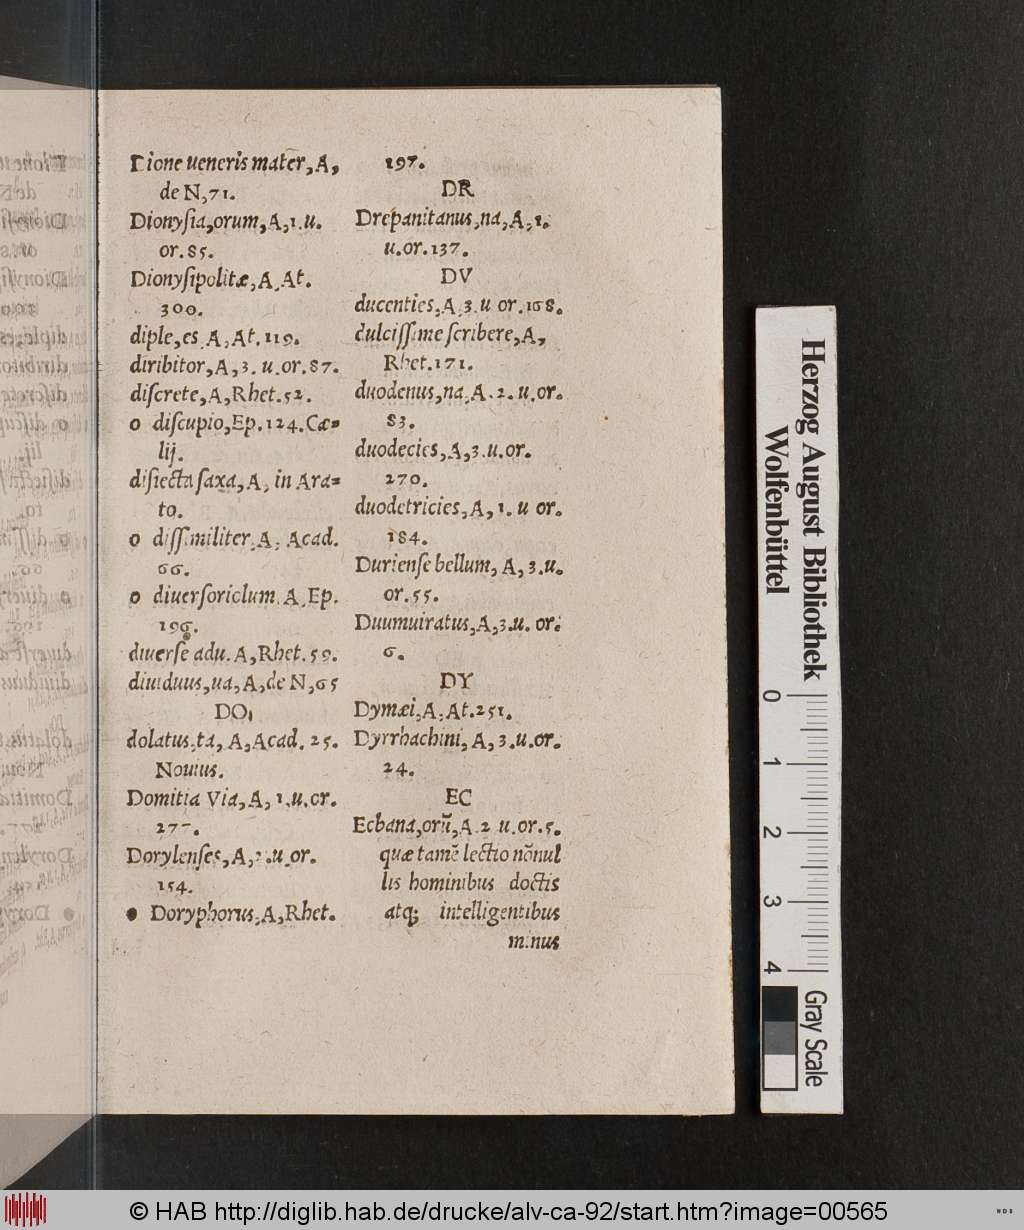 Dione ueneris mater, A,
de N, 71.
Dionyſia, orum, A, 1. u.
or. 85.
Dionyſipolitæ, A, At.
300.
diple, es, A, At. 119.
diribitor, A, 3. u. or. 87.
diſcrete, A, Rhet. 52.
o diſcupio, Ep. 124. Cæ=
lij.
diſiecta ſaxa, A, in Ara=
to.
o diſſimiliter, A, Acad.
66.
o diuerſoriolum, A, Ep.
196.
diuerſe adu. A, Rhet. 59.
diuiduus, ua, A, de N, 65
DO,
dolatus, ta, A, Acad. 25.
Nouius.
Domitia Via, A, 1. u. or.
277.
Dorylenſes, A, u. or.
154.
● Doryphorus, A, Rhet.
197.
DR
Drepanitanus, na, A, 1.
u. or. 137.
DV
ducenties, A, 3. u or. 168.
dulciſſime ſcribere, A,
Rhet. 171.
duodenus, na, A. 2. u. or.
83.
duodecies, A, 3. u. or.
270.
duodetricies, A, 1. u or.
184.
Durienſe bellum, A, 3. u.
or. 55.
Duumuiratus, A, 3. u. or.
6.
DY
Dymæi, A, At. 251.
Dyrrhachini, A, 3. u. or.
24.
EC
Ecbana, orũ, A. 2 u. or. 5.
quæ tamẽ lectio nõnul
lis hominibus doctis
atq; intelligentibus
minus
Herzog August Bibliothek
Wolfenbüttel
0 1 2 3 4
Gray Scale
© HAB http://diglib.hab.de/drucke/alv-ca-92/start.htm?image=00565